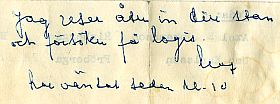 Jag reser åter in till stan
och försöker få logis.
har väntat sedan kl. 10